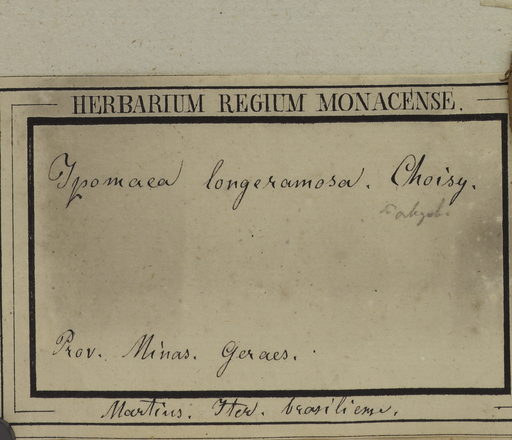 HERBARIUM REGIUM MONACENSE.
Ipomaea longeramosa. Choisy.
Prov. Minas. Geraes.
Martius. Iter. brasiliense.